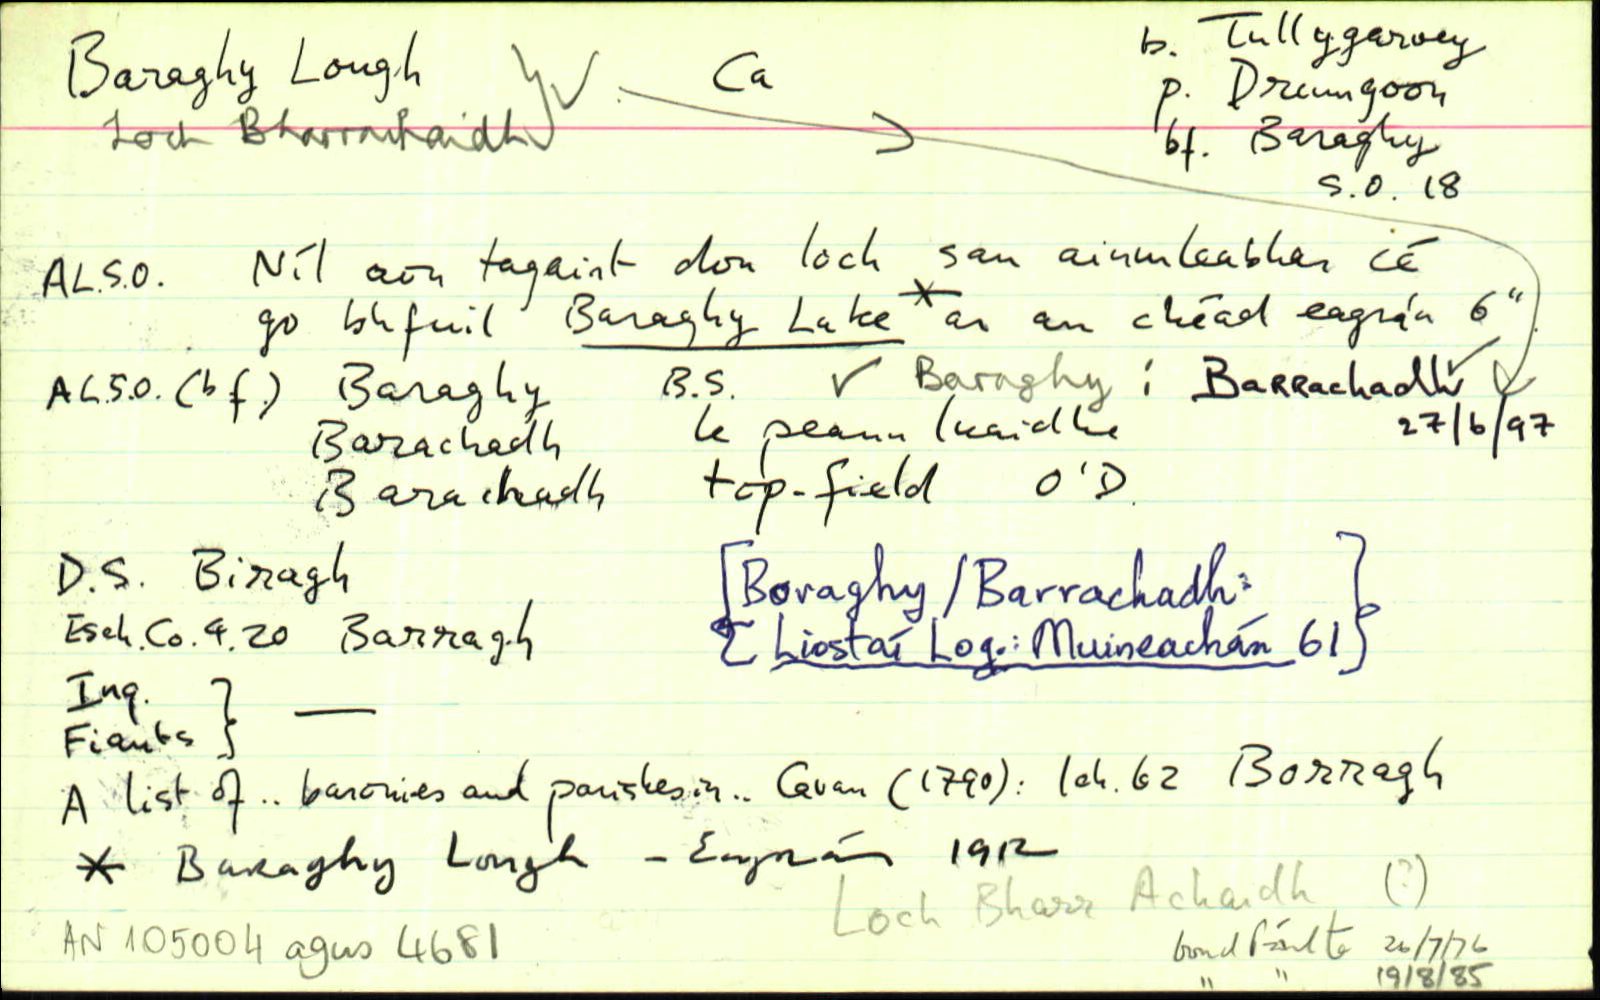 Baraghy Lough Ca
Loch Bharrachaidh
b. Tullygarvey
p. Drumgoon
bf. Baraghy
S.O. 18
AL.S.O. Níl aon tagairt don loch san ainmleabhar cé
go bhfuil Baraghy Lake * ar an chéad eagrán 6"
AL.S.O. (bf.) Baraghy B.S. ✓ Baraghy : Barrachadh ✓
27/6/97
Barachadh le peann luaidhe
Barachadh top-field O'D.
D.S. Biragh
Esch. Co. 4.20 Barragh
[Boraghy/Barrachadh:
Liostaí Log.: Muineachán 61]
Inq.
Fiants } —
A list of .. baronies and parishes in .. Cavan (1790): lch. 62 Borragh
* Baraghy Lough – Eagrán 1912
Loch Bharr Achaidh (?)
AN 105004 agus 4681
bord Fáilte 26/7/76
" " 19/8/85